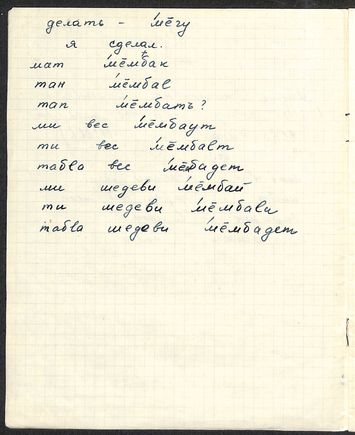 делать - мēгу
я сделал.
мат мēмбак
тан мēмбал
тап мēмбать?
ми вес мēмбаут
ти вес мēмбалт
табла вес мēмбадет
ми шедеви мēмбай
ти шедеви мēмбали
табла шедеви мēмбадет